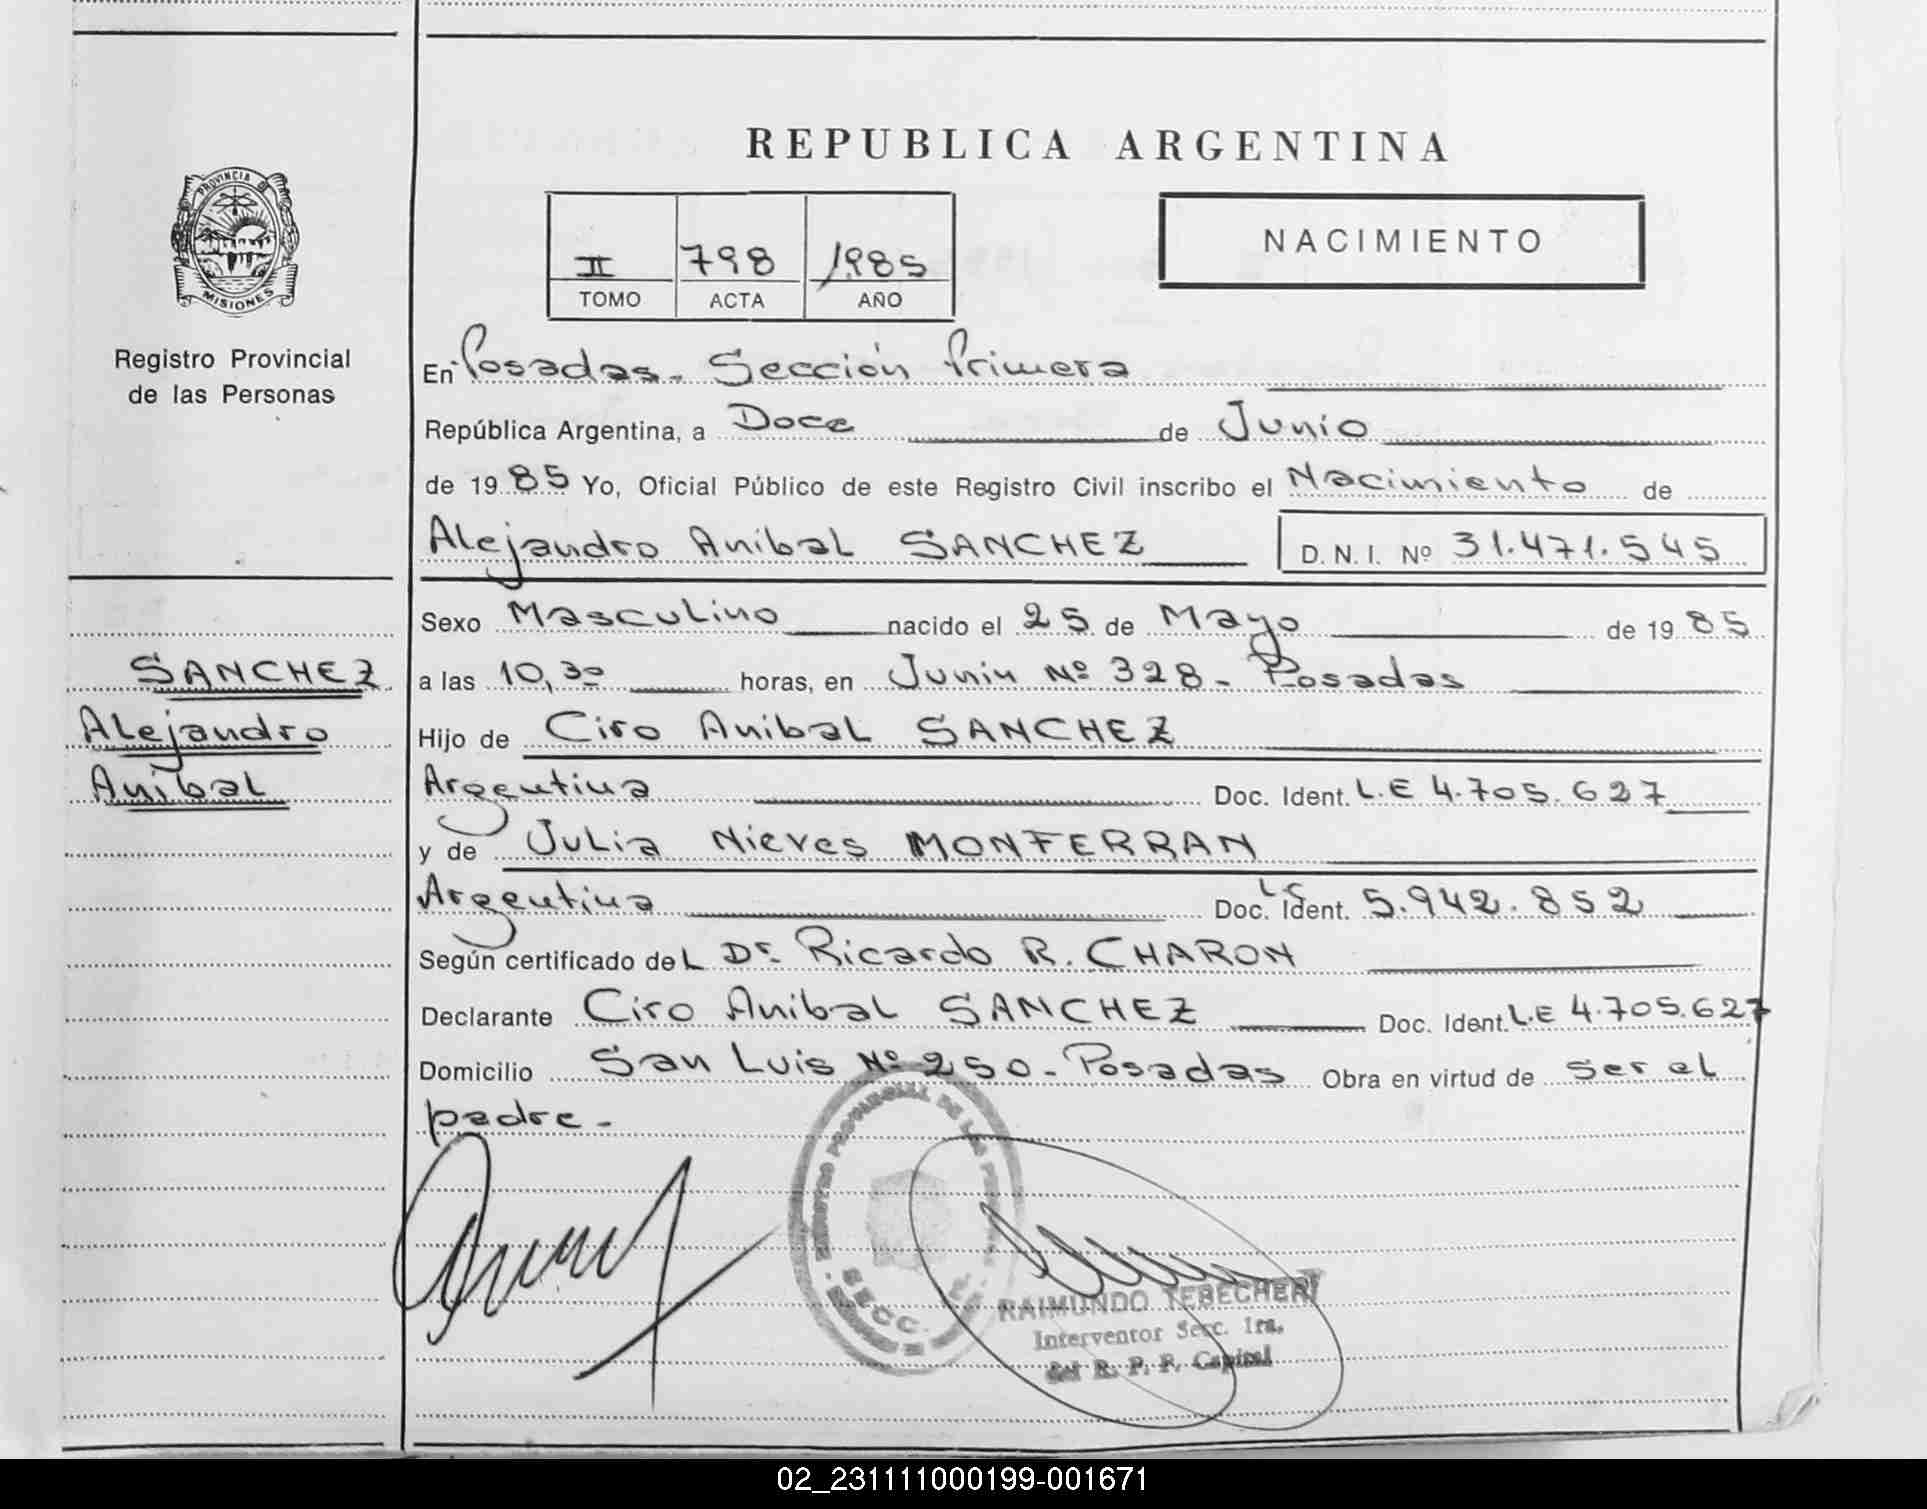 REPUBLICA ARGENTINA
PROVINCIA DE
MISIONES
Registro Provincial
de las Personas
II 798 1985
TOMO ACTA AÑO
NACIMIENTO
En Posadas - Sección Primera
República Argentina, a Doce de Junio
de 1985 Yo, Oficial Público de este Registro Civil inscribo el Nacimiento de
Alejandro Anibal SANCHEZ D. N. I. Nº 31.471.545
Sexo Masculino nacido el 25 de Mayo de 1985
SANCHEZ
Alejandro
Anibal
a las 10,30 horas, en Junin Nº 328 - Posadas
Hijo de Ciro Anibal SANCHEZ
Argentina Doc. Ident. L.E 4.705.627
y de Julia Nieves MONFERRAN
Argentina Doc. Ident. LC 5.942.852
Según certificado del Dr. Ricardo R. CHARON
Declarante Ciro Anibal SANCHEZ Doc. Ident. L.E 4.705.627
Domicilio San Luis Nº 250 - Posadas Obra en virtud de ser el
padre -
REGISTRO PROVINCIAL DE LAS
SECC.
RAIMUNDO TEBECHERI
Interventor Secc. 1ra.
del R. P. P. Capital
02_231111000199-001671